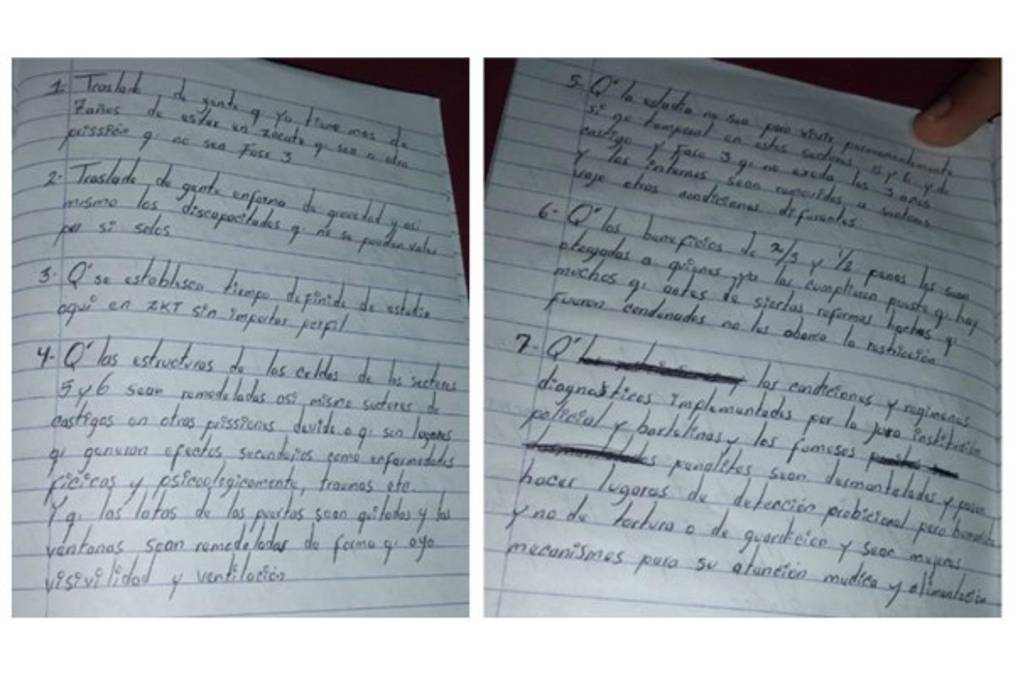 1. Traslado de gente q ya tiene mas de
7 años de estar en zacate q. sea a otra
prissión q. no sea Fase 3
2- Traslado de gente enferma de gravedad y asi
mismo los discapacitados q. no se pueden valer
por si solos
3- Q' se establesca tiempo definido de estadia
aquí en ZKT sin importar perfil
4- Q' las estructuras de las celdas de los sectores
5 y 6 sean remodeladas asi mismo sectores de
castigos en otras prissiones devido a q. son lugares
q. generan efectos secundarios como enfermedades
físicas y psicologicamente, traumas etc.
Y q. las latas de las puertas sean quitadas y las
ventanas sean remodeladas de forma q. aya
visivilidad y ventilación
5- Q' la estadia no sea para vivir permanentemente
si no temporal en estos sectores 5 y 6 y de
castigo y Fase 3 q. no exeda los 3 años
y los internos sean removidos a sectores
bajo otras condiciones diferentes
6- Q' los beneficios de 2/3 y 1/2 penas les sean
otorgados a quienes ya las cumplieron puesto q. hay
muchos q. antes de siertas reformas hechas q'
fueron condenados no les abarca la restricción
7- Q' las condiciones y regimenes
diagnosticos implementados por la jura institución
policial y bartolinas y los famosos
penalitos sean desmantelados y pasen
hacer lugares de detección probicional para
y no de tortura o de guarnicion y sean mejores
mecanismos para su atención medica y alimentación